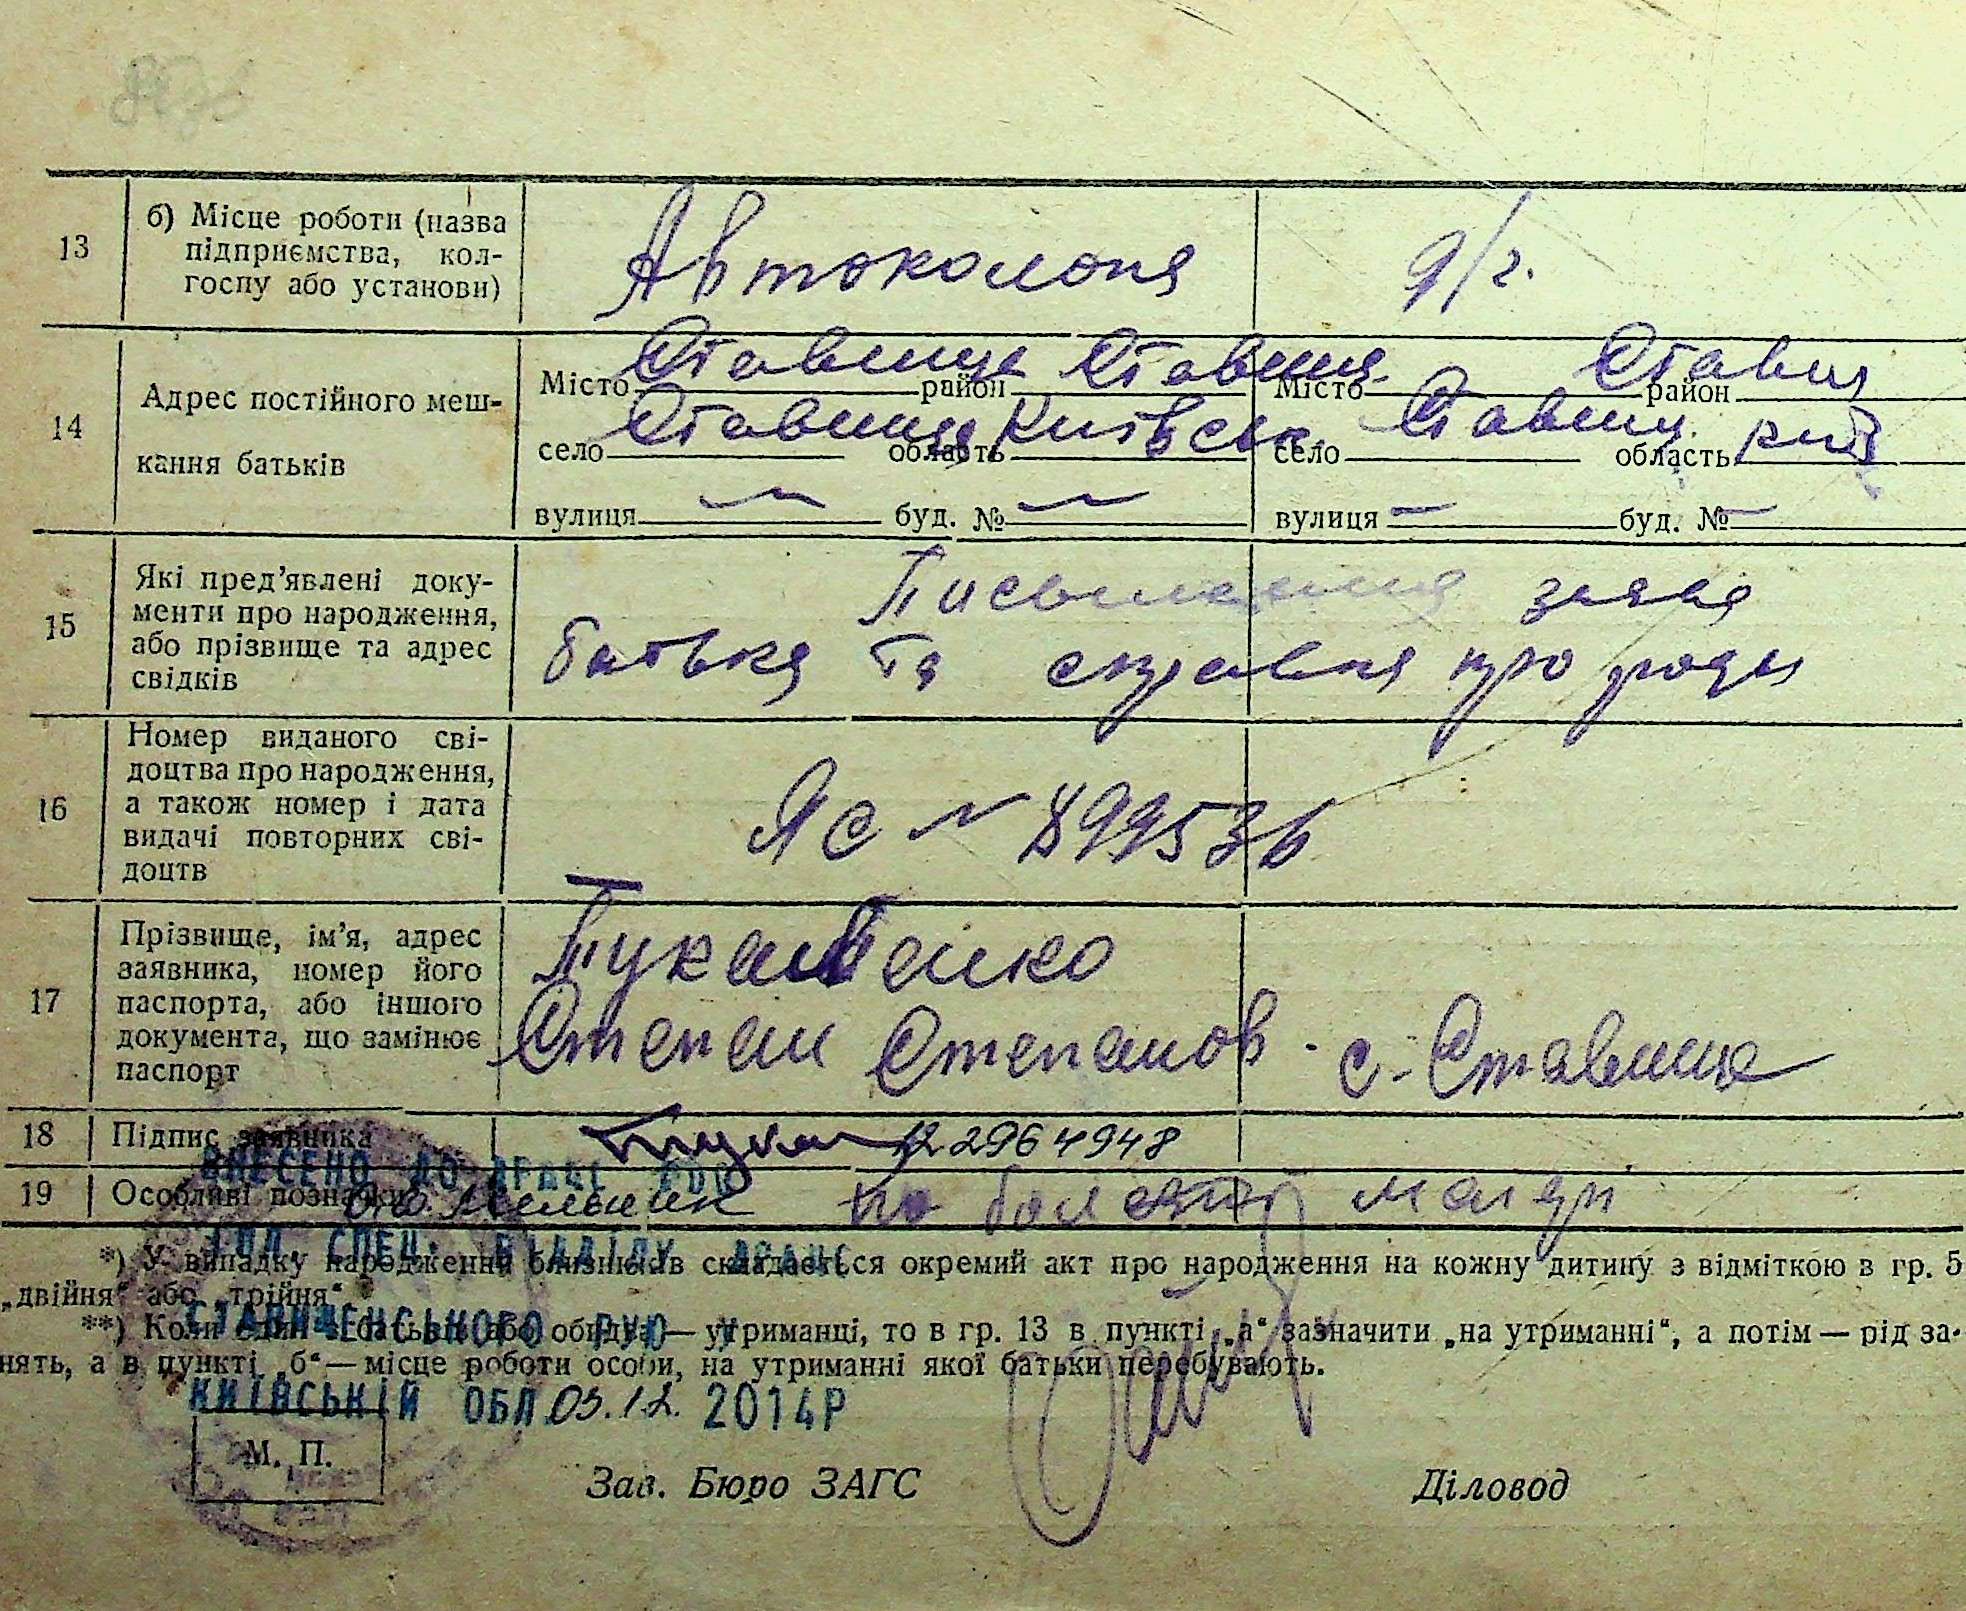 13 б) Місце роботи (назва підприємства, кол-госпу або установи) Автоколона д/г.
14 Адрес постійного меш-кання батьків
Місто Ставище район Ставищ. Місто район Ставищ
село Ставище область Київськ. село Ставищ. область Київ
вулиця — буд. № — вулиця — буд. № —
15 Які пред’явлені доку-
менти про народження,
або прізвище та адрес
свідків
Письменна заява
батька та справка про роди
16 Номер виданого сві-
доцтва про народження,
а також номер і дата
видачі повторних сві-
доцтв
ЯС № 899536
17 Прізвище, ім’я, адрес
заявника, номер його
паспорта, або іншого
документа, що замінює
паспорт
Степан Степанов. с. Ставище
18 Підпис заявника 12296 4948
19 Особливі позначки
ВНЕСЕНО ДО ДРАЦС
Мельник
СПЕЦ. ВІДДІЛУ ДРАЦС
*) У випадку народження близнюків складається окремий акт про народження на кожну дитину з відміткою в гр. 5
„двійня“ або „трійня“
СТАВИЩЕНСЬКОГО РУЮ У
**) Коли один з батьків або обидва — утриманці, то в гр. 13 в пункті „а“ зазначити „на утриманні“, а потім — рід за-
нять, а в пункті „б“ — місце роботи особи, на утриманні якої батьки перебувають.
КИЇВСЬКІЙ ОБЛ. 03.12. 2014Р
М. П.
Зав. Бюро ЗАГС Діловод